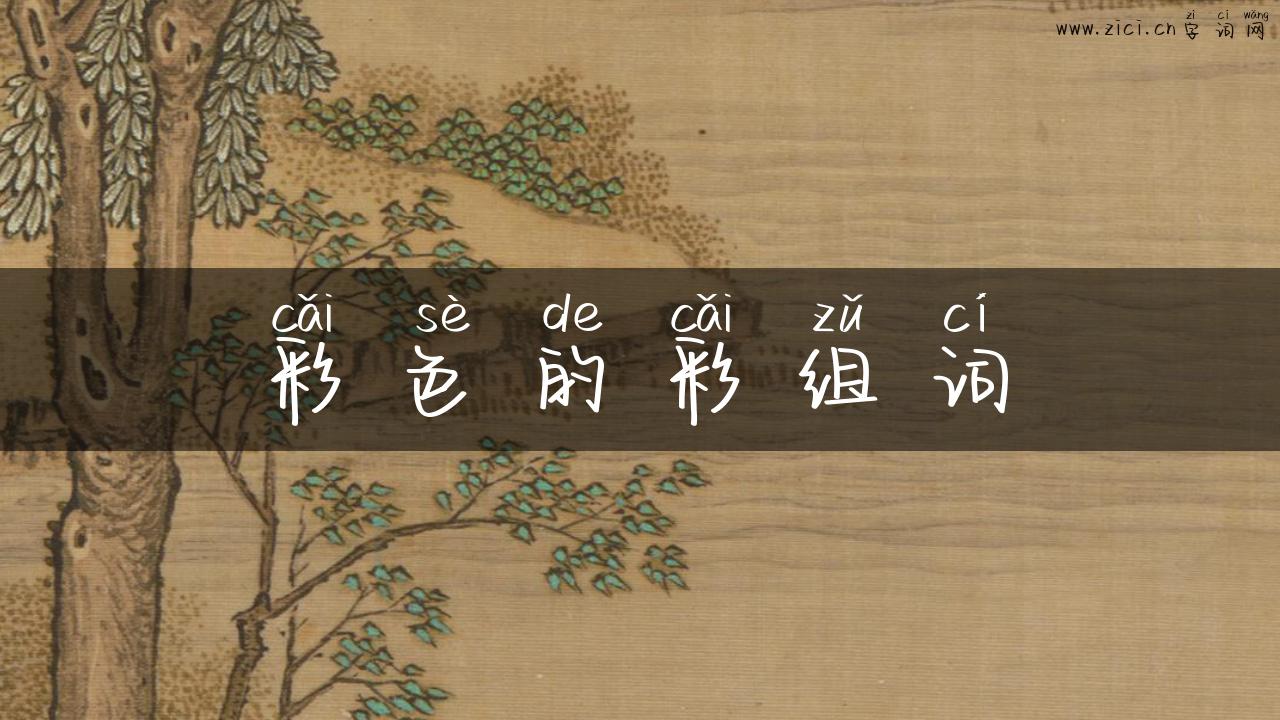 www.zici.cn zì cí wǎng
字词网
cǎi sè de cǎi zǔ cí
彩色的彩组词